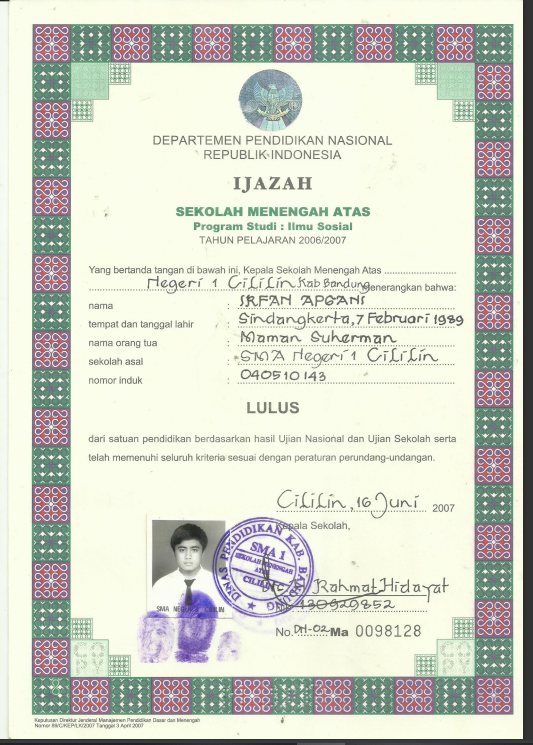 DEPARTEMEN PENDIDIKAN NASIONAL
REPUBLIK INDONESIA
IJAZAH
SEKOLAH MENENGAH ATAS
Program Studi : Ilmu Sosial
TAHUN PELAJARAN 2006/2007
Yang bertanda tangan di bawah ini, Kepala Sekolah Menengah Atas
Negeri 1 Cililin Kab Bandung menerangkan bahwa:
nama : IRFAN APGANI
tempat dan tanggal lahir : Sindangkerta, 7 Februari 1989
nama orang tua : Maman Suherman
sekolah asal : SMA Negeri 1 Cililin
nomor induk : 040510143
LULUS
dari satuan pendidikan berdasarkan hasil Ujian Nasional dan Ujian Sekolah serta
telah memenuhi seluruh kriteria sesuai dengan peraturan perundang-undangan.
Cililin, 16 Juni 2007
Kepala Sekolah,
DINAS PENDIDIKAN KAB. BANDUNG
SMA 1
SEKOLAH MENENGAH
ATAS
CILILIN
Rahmat Hidayat
130929852
SMA NEGERI CILILIN
No. DN-02 Ma 0098128
COPY
COPY
Keputusan Direktur Jenderal Manajemen Pendidikan Dasar dan Menengah
Nomor 89/C/KEP/LK/2007 Tanggal 3 April 2007